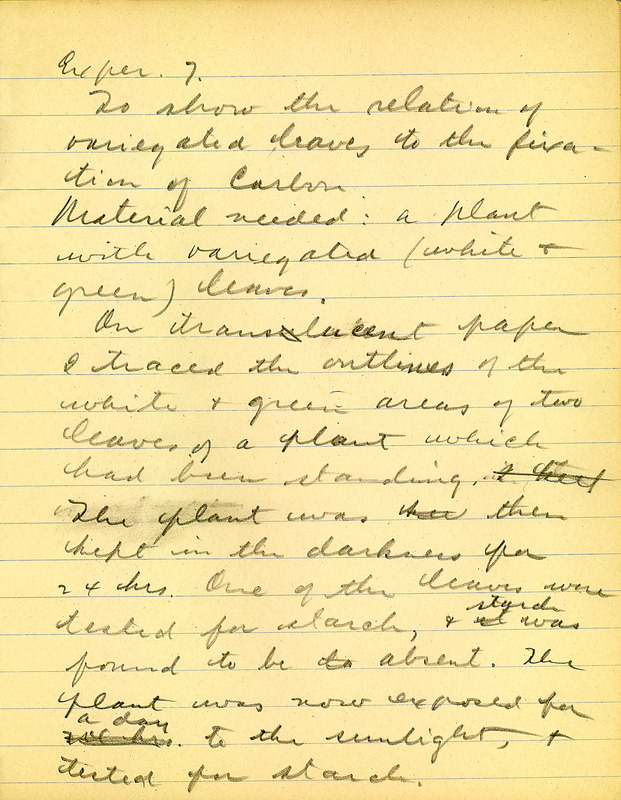 Exper. 7.
To show the relation of
variegated leaves to the fixa-
tion of Carbon
Material needed: a plant
with variegated (white +
green) leaves.
On translucent paper
I traced the outlines of the
white + green areas of two
leaves of a plant which
had been standing. & kept
The plant was then
kept in the darkness for
24 hrs. One of the leaves were
starch
tested for starch, & it was
found to be to absent. The
plant was now exposed for
a day
hrs. to the sunlight, +
tested for starch.